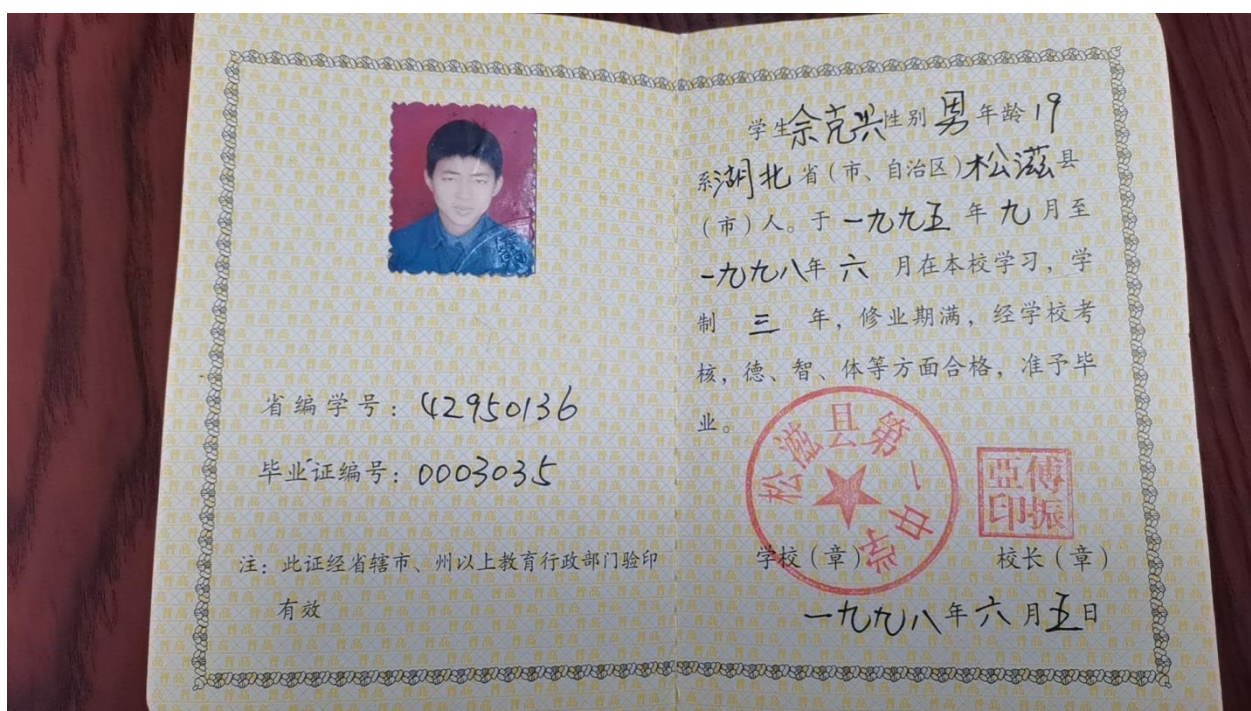 省编学号：42950136
毕业证编号：0003035
注：此证经省辖市、州以上教育行政部门验印
有效
学生佘克兴性别男年龄19
系湖北省(市、自治区)松滋县
(市)人。于一九九五年九月至
一九九八年六月在本校学习，学
制三年，修业期满，经学校考
核，德、智、体等方面合格，准予毕
业。
松滋县第一中学
傅振亞印
学校(章)
校长(章)
一九九八年六月五日